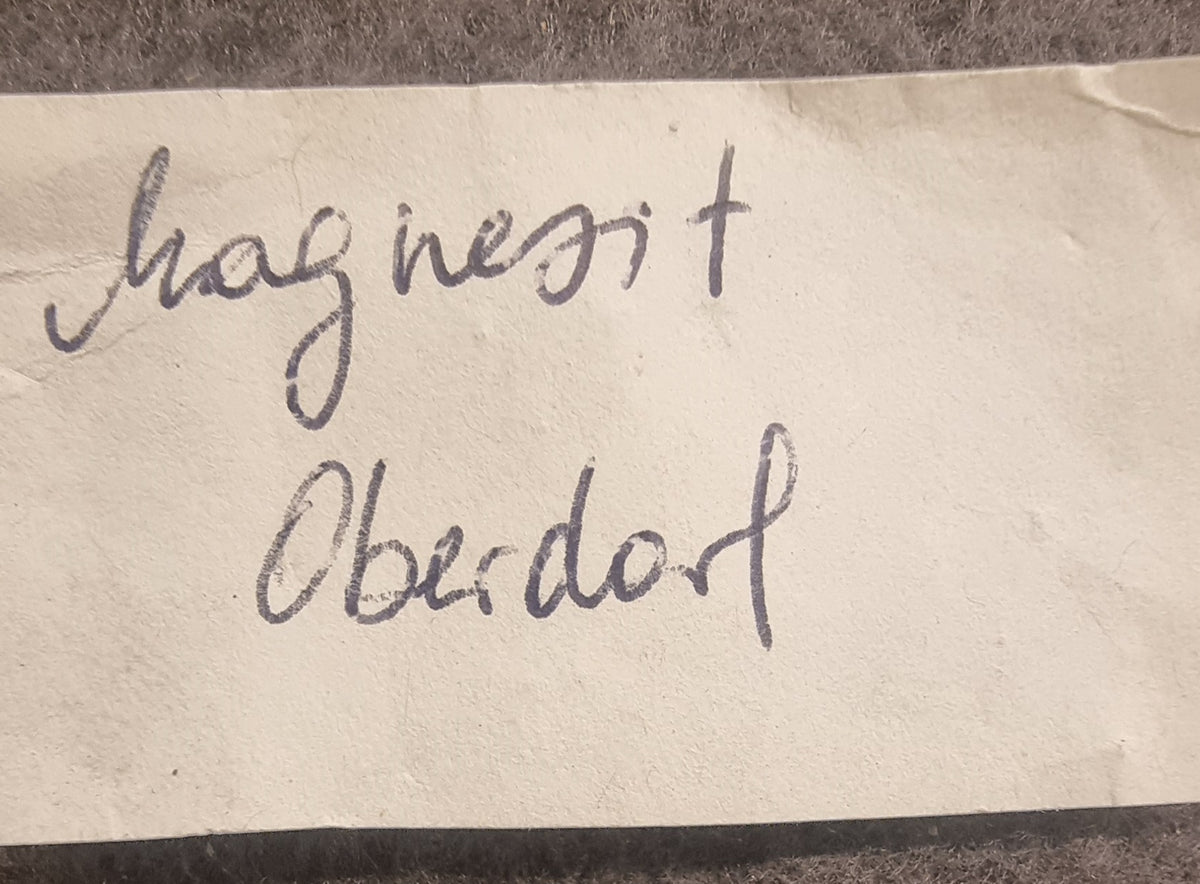 Magnesit
Oberdorf